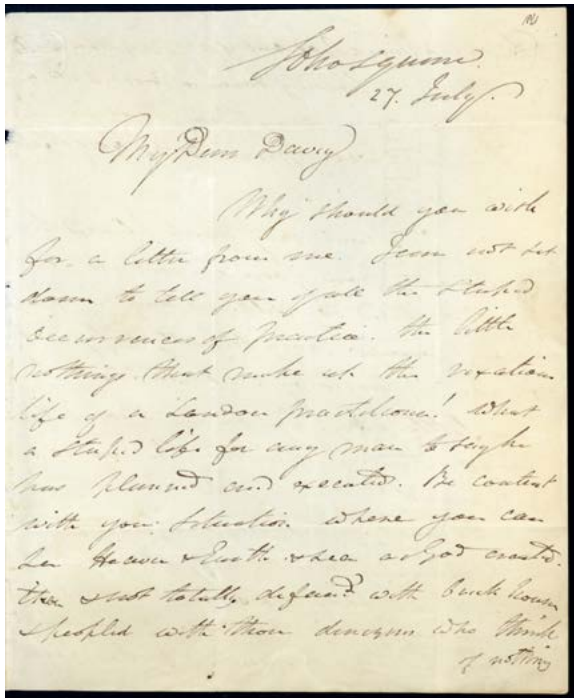 Soho Square
27. July.
My Dear Davey
Why should you wish
for a letter from me. I can not sit
down to tell you of all the stupid
occurrences of practice. the little
nothings that make up the vexatious
life of a London practitioner! What
a stupid life for any man to say he
has planned and executed. Be content
with your situation where you can
see Heaven & Earth & sea as God created
them & not totally defaced with brick houses
& peopled with those denizens who think
of nothing